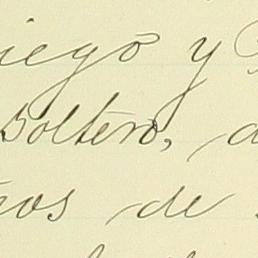 iego y
soltero, d
ros de